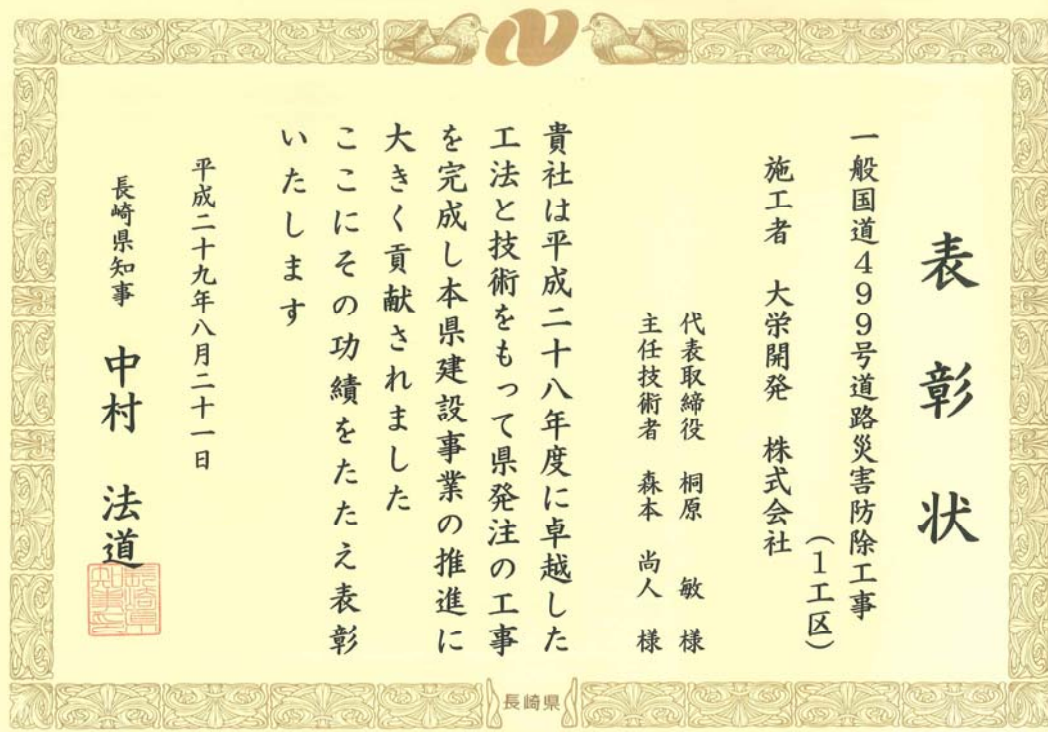 表彰状
一般国道499号道路災害防除工事
(1工区)
施工者 大栄開発 株式会社
代表取締役 桐原 敏 様
主任技術者 森本 尚人 様
貴社は平成二十八年度に卓越した
工法と技術をもって県発注の工事
を完成し本県建設事業の推進に
大きく貢献されました
ここにその功績をたたえ表彰
いたします
平成二十九年八月二十一日
長崎県知事 中村 法道
長崎県知事之印
長崎県